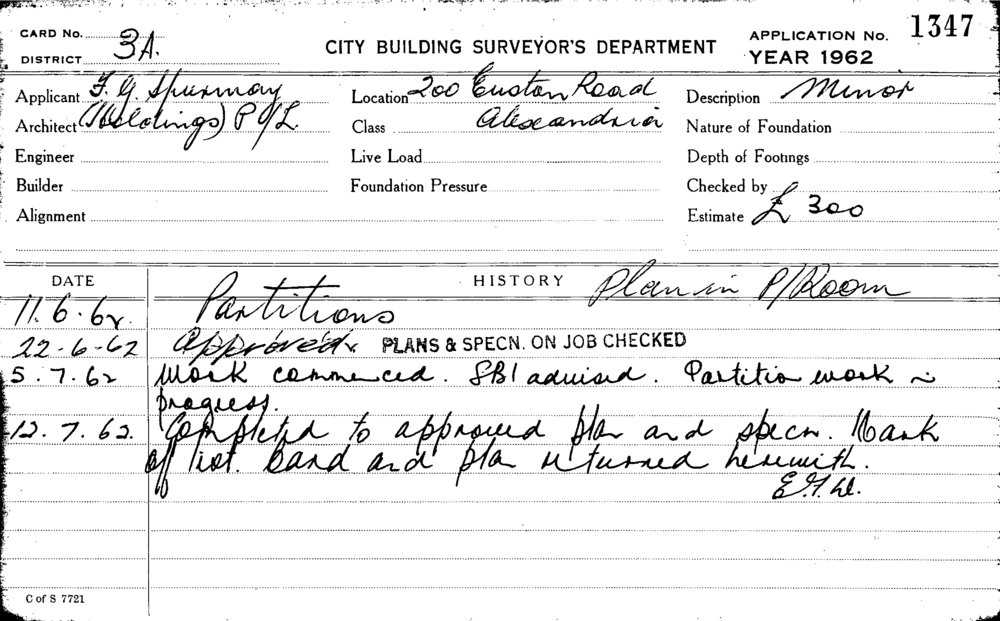 CARD No.
DISTRICT 3A.
CITY BUILDING SURVEYOR'S DEPARTMENT
APPLICATION No. 1347
YEAR 1962
Applicant F. G. Spurway
Location 200 Euston Road
Description Minor
Architect (Holdings) P/L
Class Alexandria
Nature of Foundation
Engineer
Live Load
Depth of Footings
Builder
Foundation Pressure
Checked by
Alignment
Estimate £ 300
DATE
HISTORY Plan in P/Room
11.6.62. Partitions
22-6-62 Approved. PLANS & SPECN. ON JOB CHECKED
5.7.62 Work commenced. SBI advised. Partition work in
progress.
12.7.62. Completed to approved plan and specn. Mark
off list. Card and plan returned herewith.
C of S 7721